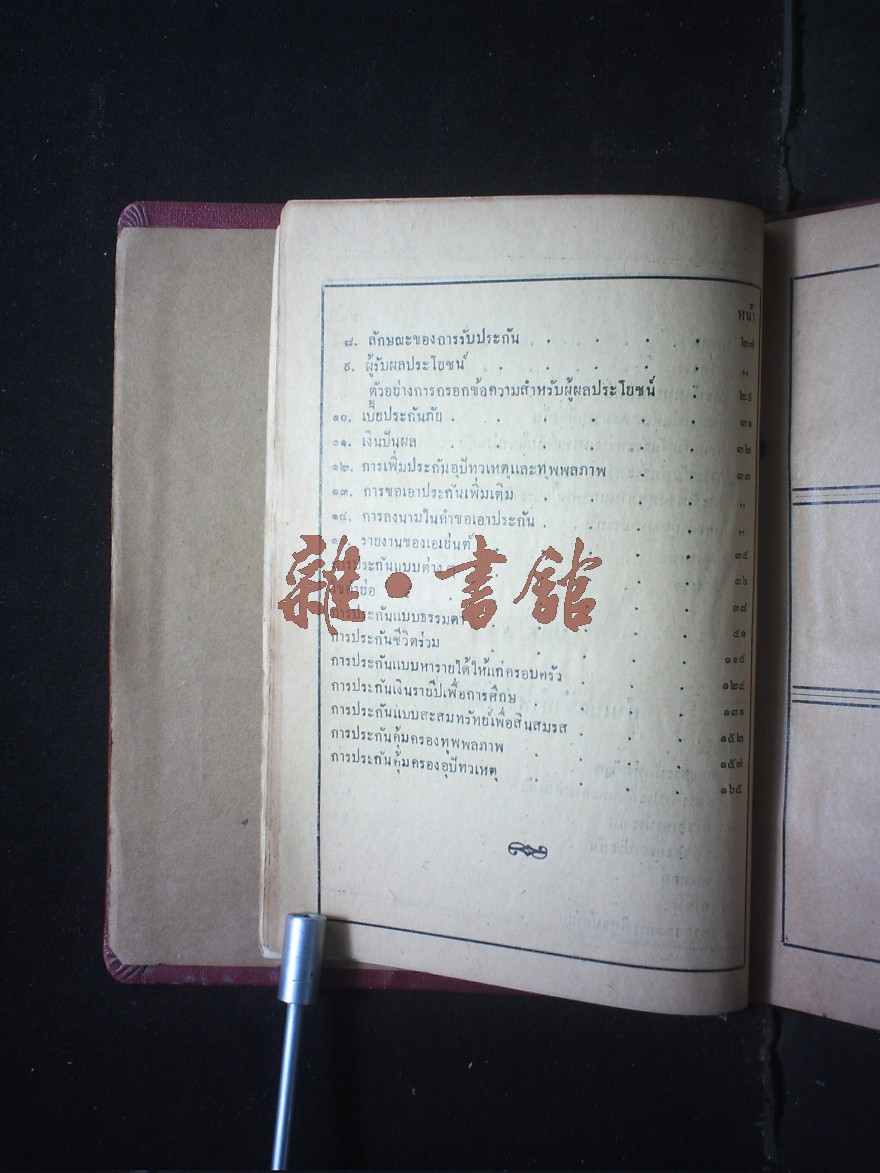 หน้า
๘. ลักษณะของการรับประกัน . . . . ๒๗
๙. ผู้รับผลประโยชน์ . . . . . ”
ตัวอย่างการกรอกข้อความสำหรับผู้ผลประโยชน์ . ๒๙
๑๐. เบี้ยประกันภัย . . . . . . ๓๑
๑๑. เงินปันผล . . . . . . ๓๒
๑๒. การเพิ่มประกันอุปัทวเหตุและทุพพลภาพ . . ๓๓
๑๓. การขอเอาประกันเพิ่มเติม . . . . ”
๑๔. การลงนามในคำขอเอาประกัน . . . . ”
รายงานของเอเย่นต์ . . . . ๓๔
การประกันแบบต่าง ๆ . . . . ๓๖
๓๘
การประกันแบบธรรมดา . . . . ๔๑
การประกันชีวิตร่วม . . . . . ๑๑๔
การประกันแบบหารายได้ให้แก่ครอบครัว . . . ๑๒๔
การประกันเงินรายปีเพื่อการศึกษ . . . . ๑๓๑
การประกันแบบสะสมทรัพย์เพื่อสินสมรส . . . ๑๕๒
การประกันคุ้มครองทุพพลภาพ . . . . ๑๕๗
การประกันคุ้มครองอุปัทวเหตุ . . . . ๑๖๕
雜·書館